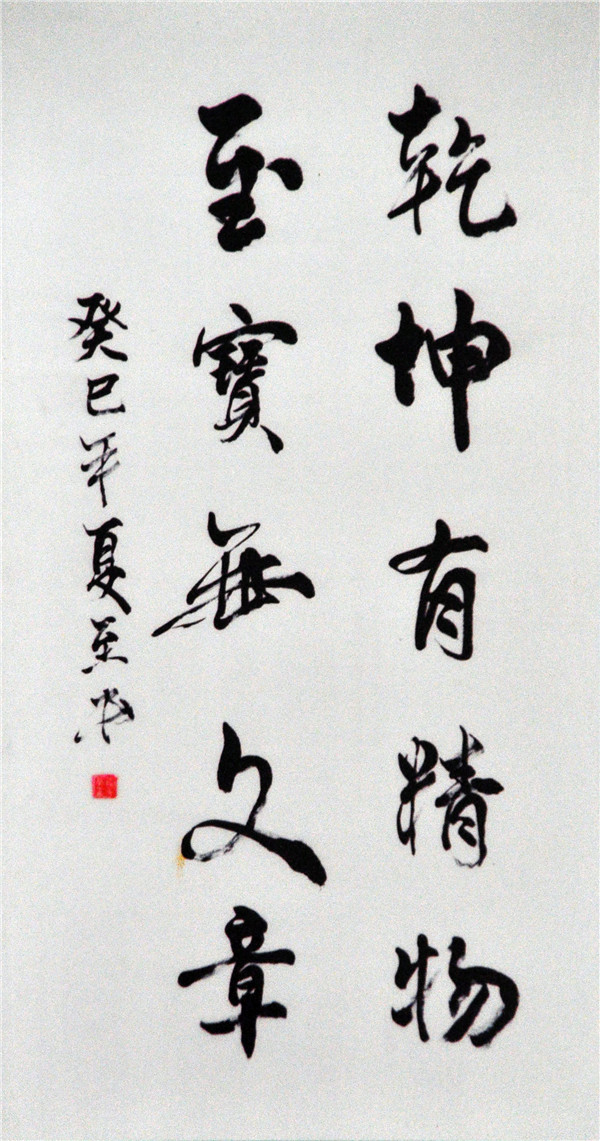 乾坤有精物
至寶無文章
癸巳年夏至